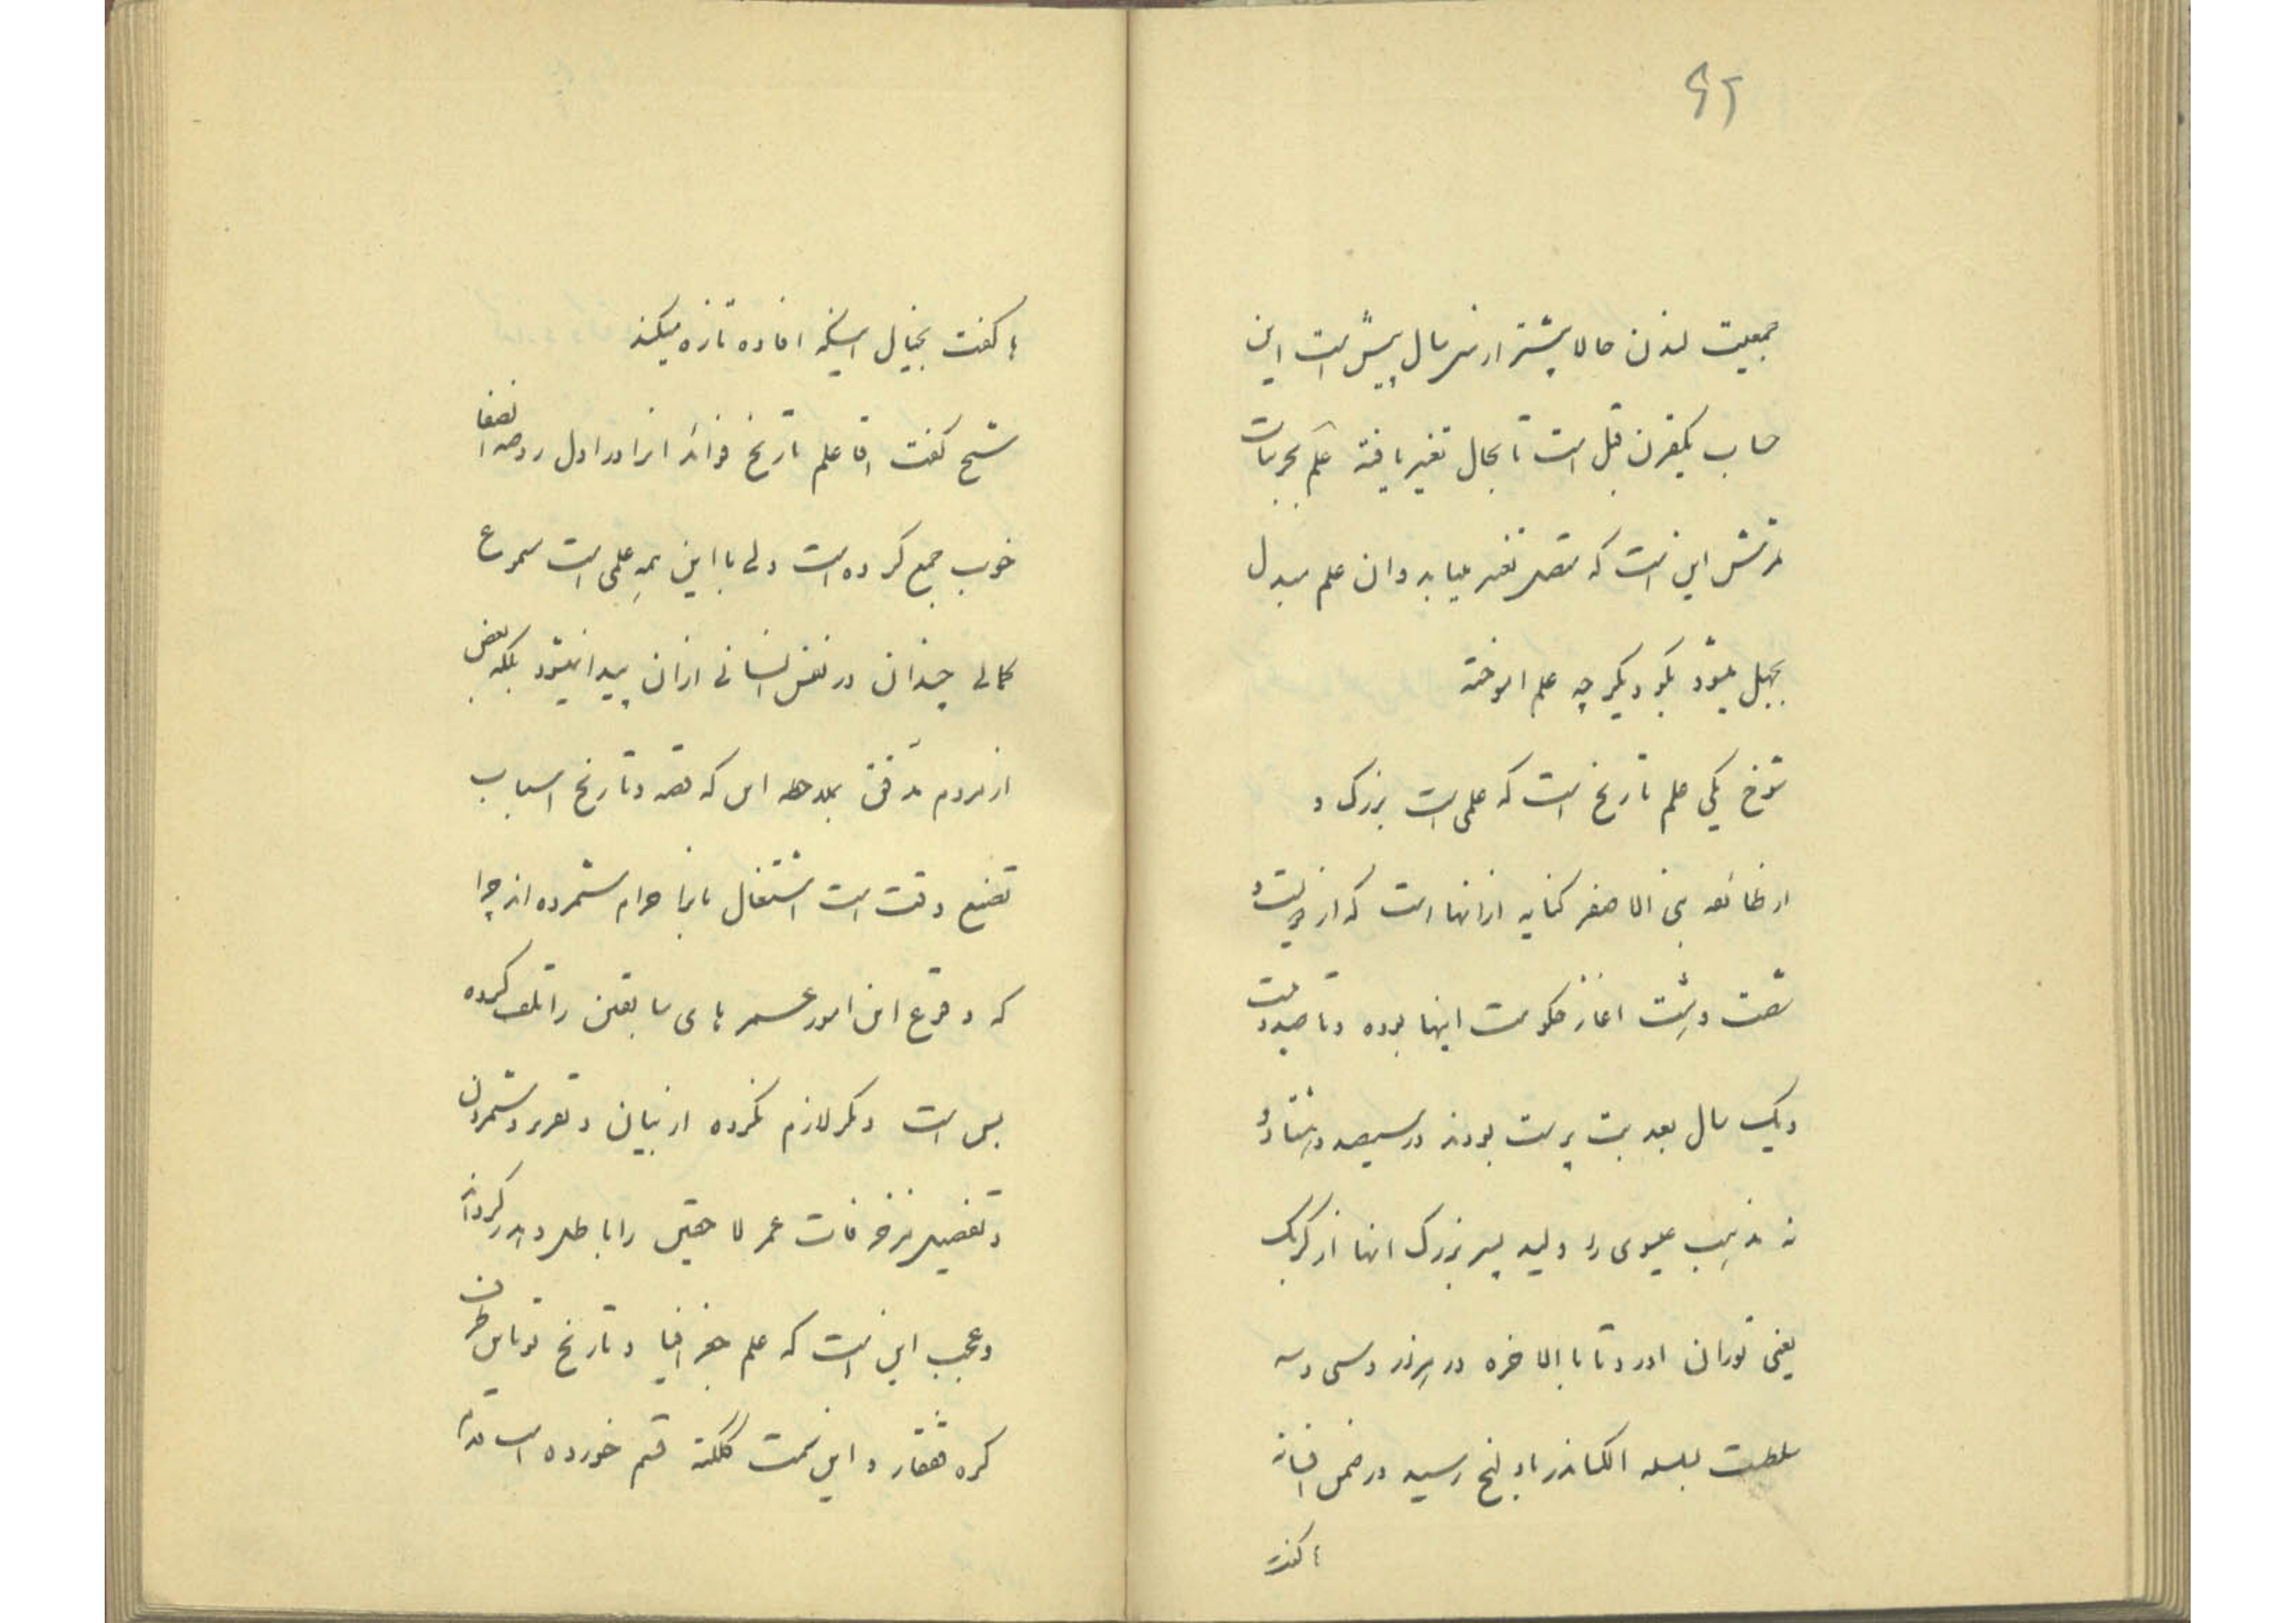 ۶۲
جمعیت لندن حالا بیشتر از سال پیش است این
حساب یکقرن قبل است تا بحال تغییر یافته علم بجزئیات
این است که متصل تغییر مییابد و ان علم مبدل
بجهل میشود بگو دیگر چه علم اموخته
شوخ یکی علم تاریخ است که علمی است بزرک و
از طائفه بنی الاصفر کنایه از انها است که از دویست و
شصت و هشت اغاز حکومت اینها بوده و تا صد و بیست
و یک سال بعد بت پرست بودند در سیصد و هشتاد و
نه مذهب عیسوی را ولید پسر بزرک انها از کرکرک
یعنی توران اورد و تا بالاخره در هزار و سی و سه
سلطنت بسلسله الکساندر پاولنج رسید در ضمن افسانه
ها گفت
ها گفت بخیال اینکه افاده تازه میکند
شیخ گفت اقا علم تاریخ فوائد انرا در اول روضه الصفا
خوب جمع کرده است ولی با این همه علمی است مسموع
کمالی چندان در نفس انسانی از ان پیدا نمیشود بلکه بعضی
از مردم مدقق بملاحظه اینکه قصه و تاریخ اسباب
تضییع وقت است اشتغال بانرا حرام شمرده اند چرا
که وقوع این امور عمر های سابقین را تلف کرده
بس است دیگر لازم نکرده از بیان و تقریر و شمردن
و تفصیل مزخرفات عمر لاحقین را باطل و هدر کردن
و عجب این است که علم جغرافیا و تاریخ تو باین طرف
کره قفقاز و این سمت گنگنه قسم خورده است قدم